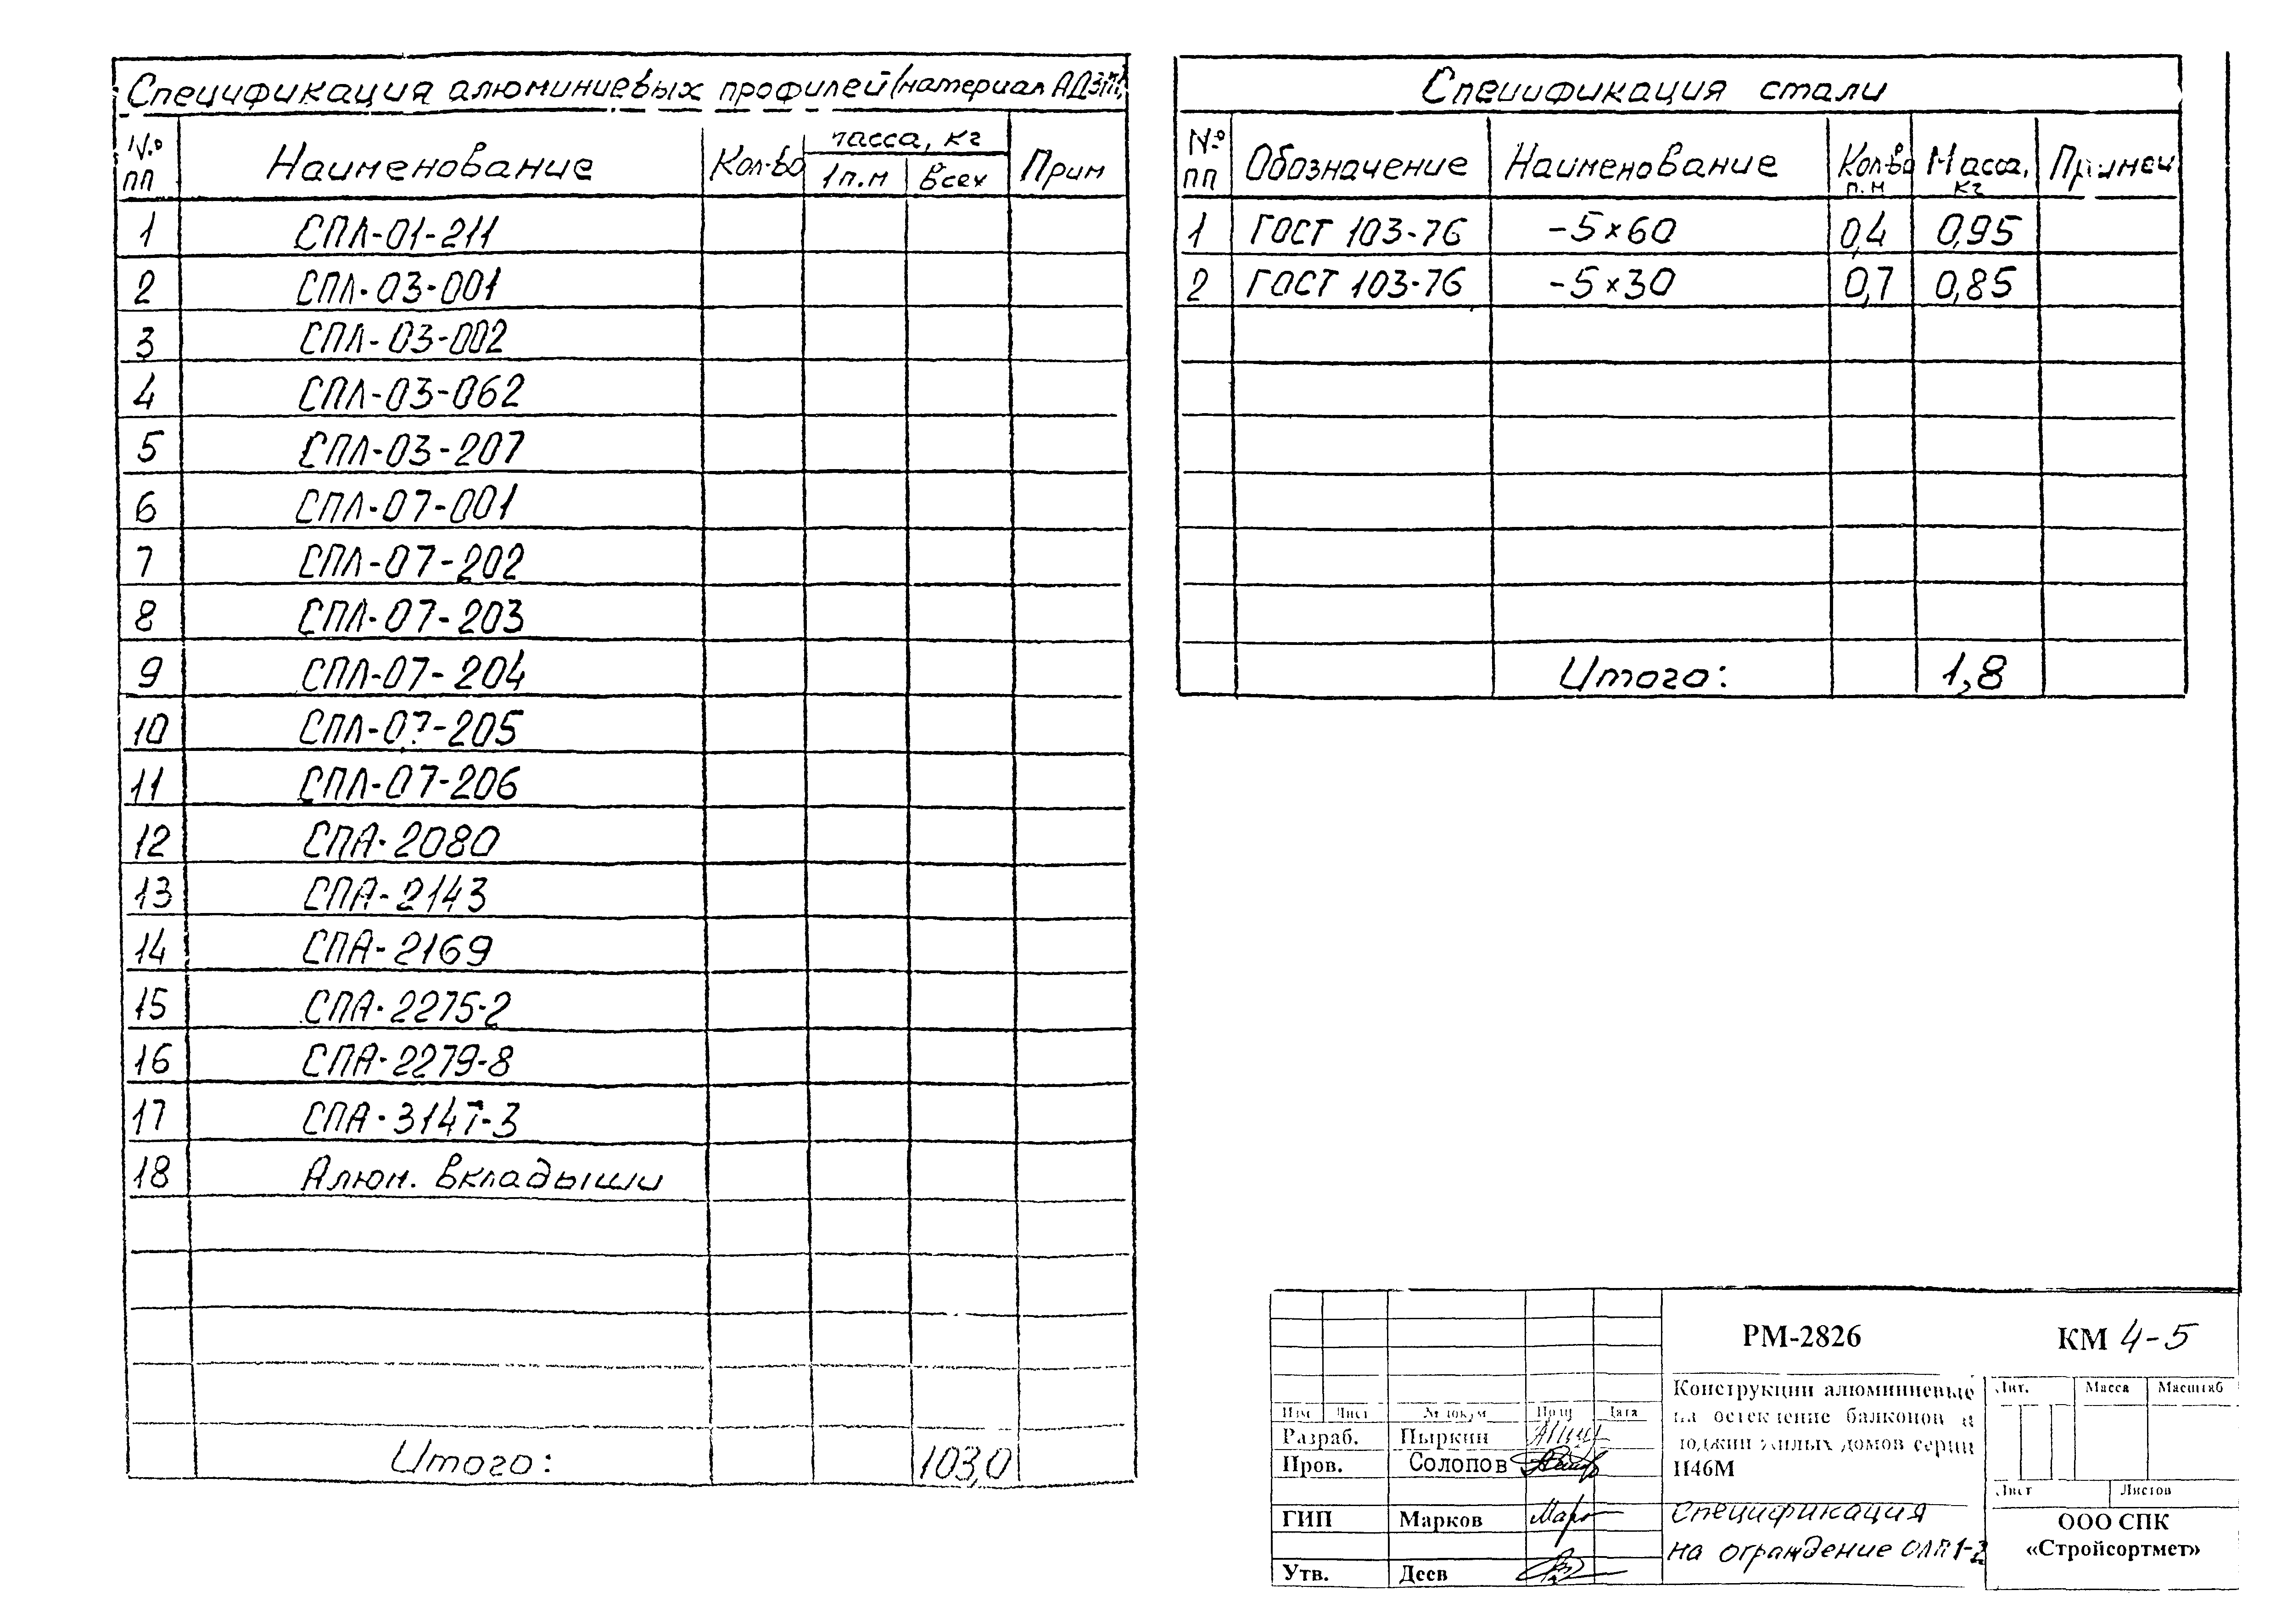 Спецификация алюминиевых профилей (материал АД31Т1)
№ пп Наименование Кол-во Масса, кг Прим
1 п.м всех
1 СПЛ-01-211
2 СПЛ-03-001
3 СПЛ-03-002
4 СПЛ-03-062
5 СПЛ-03-207
6 СПЛ-07-001
7 СПЛ-07-202
8 СПЛ-07-203
9 СПЛ-07-204
10 СПЛ-07-205
11 СПЛ-07-206
12 СПА-2080
13 СПА-2143
14 СПА-2169
15 СПА-2275-2
16 СПА-2279-8
17 СПА-3147-3
18 Алюм. вкладыши
Итого: 103,0
Спецификация стали
№ пп Обозначение Наименование Кол-во п.м Масса, кг Примеч
1 ГОСТ 103-76 -5×60 0,4 0,95
2 ГОСТ 103-76 -5×30 0,7 0,85
Итого: 1,8
РМ-2826 КМ 4-5
Конструкции алюминиевые
на остекление балконов и
лоджий жилых домов серии
П46М
Лит. Масса Масштаб
Изм Лист № докум Подп Дата
Разраб. Пыркин
Пров. Солопов
Лист Листов
ГИП Марков
Утв. Деев
Спецификация
на ограждение
ООО СПК
«Стройсортмет»